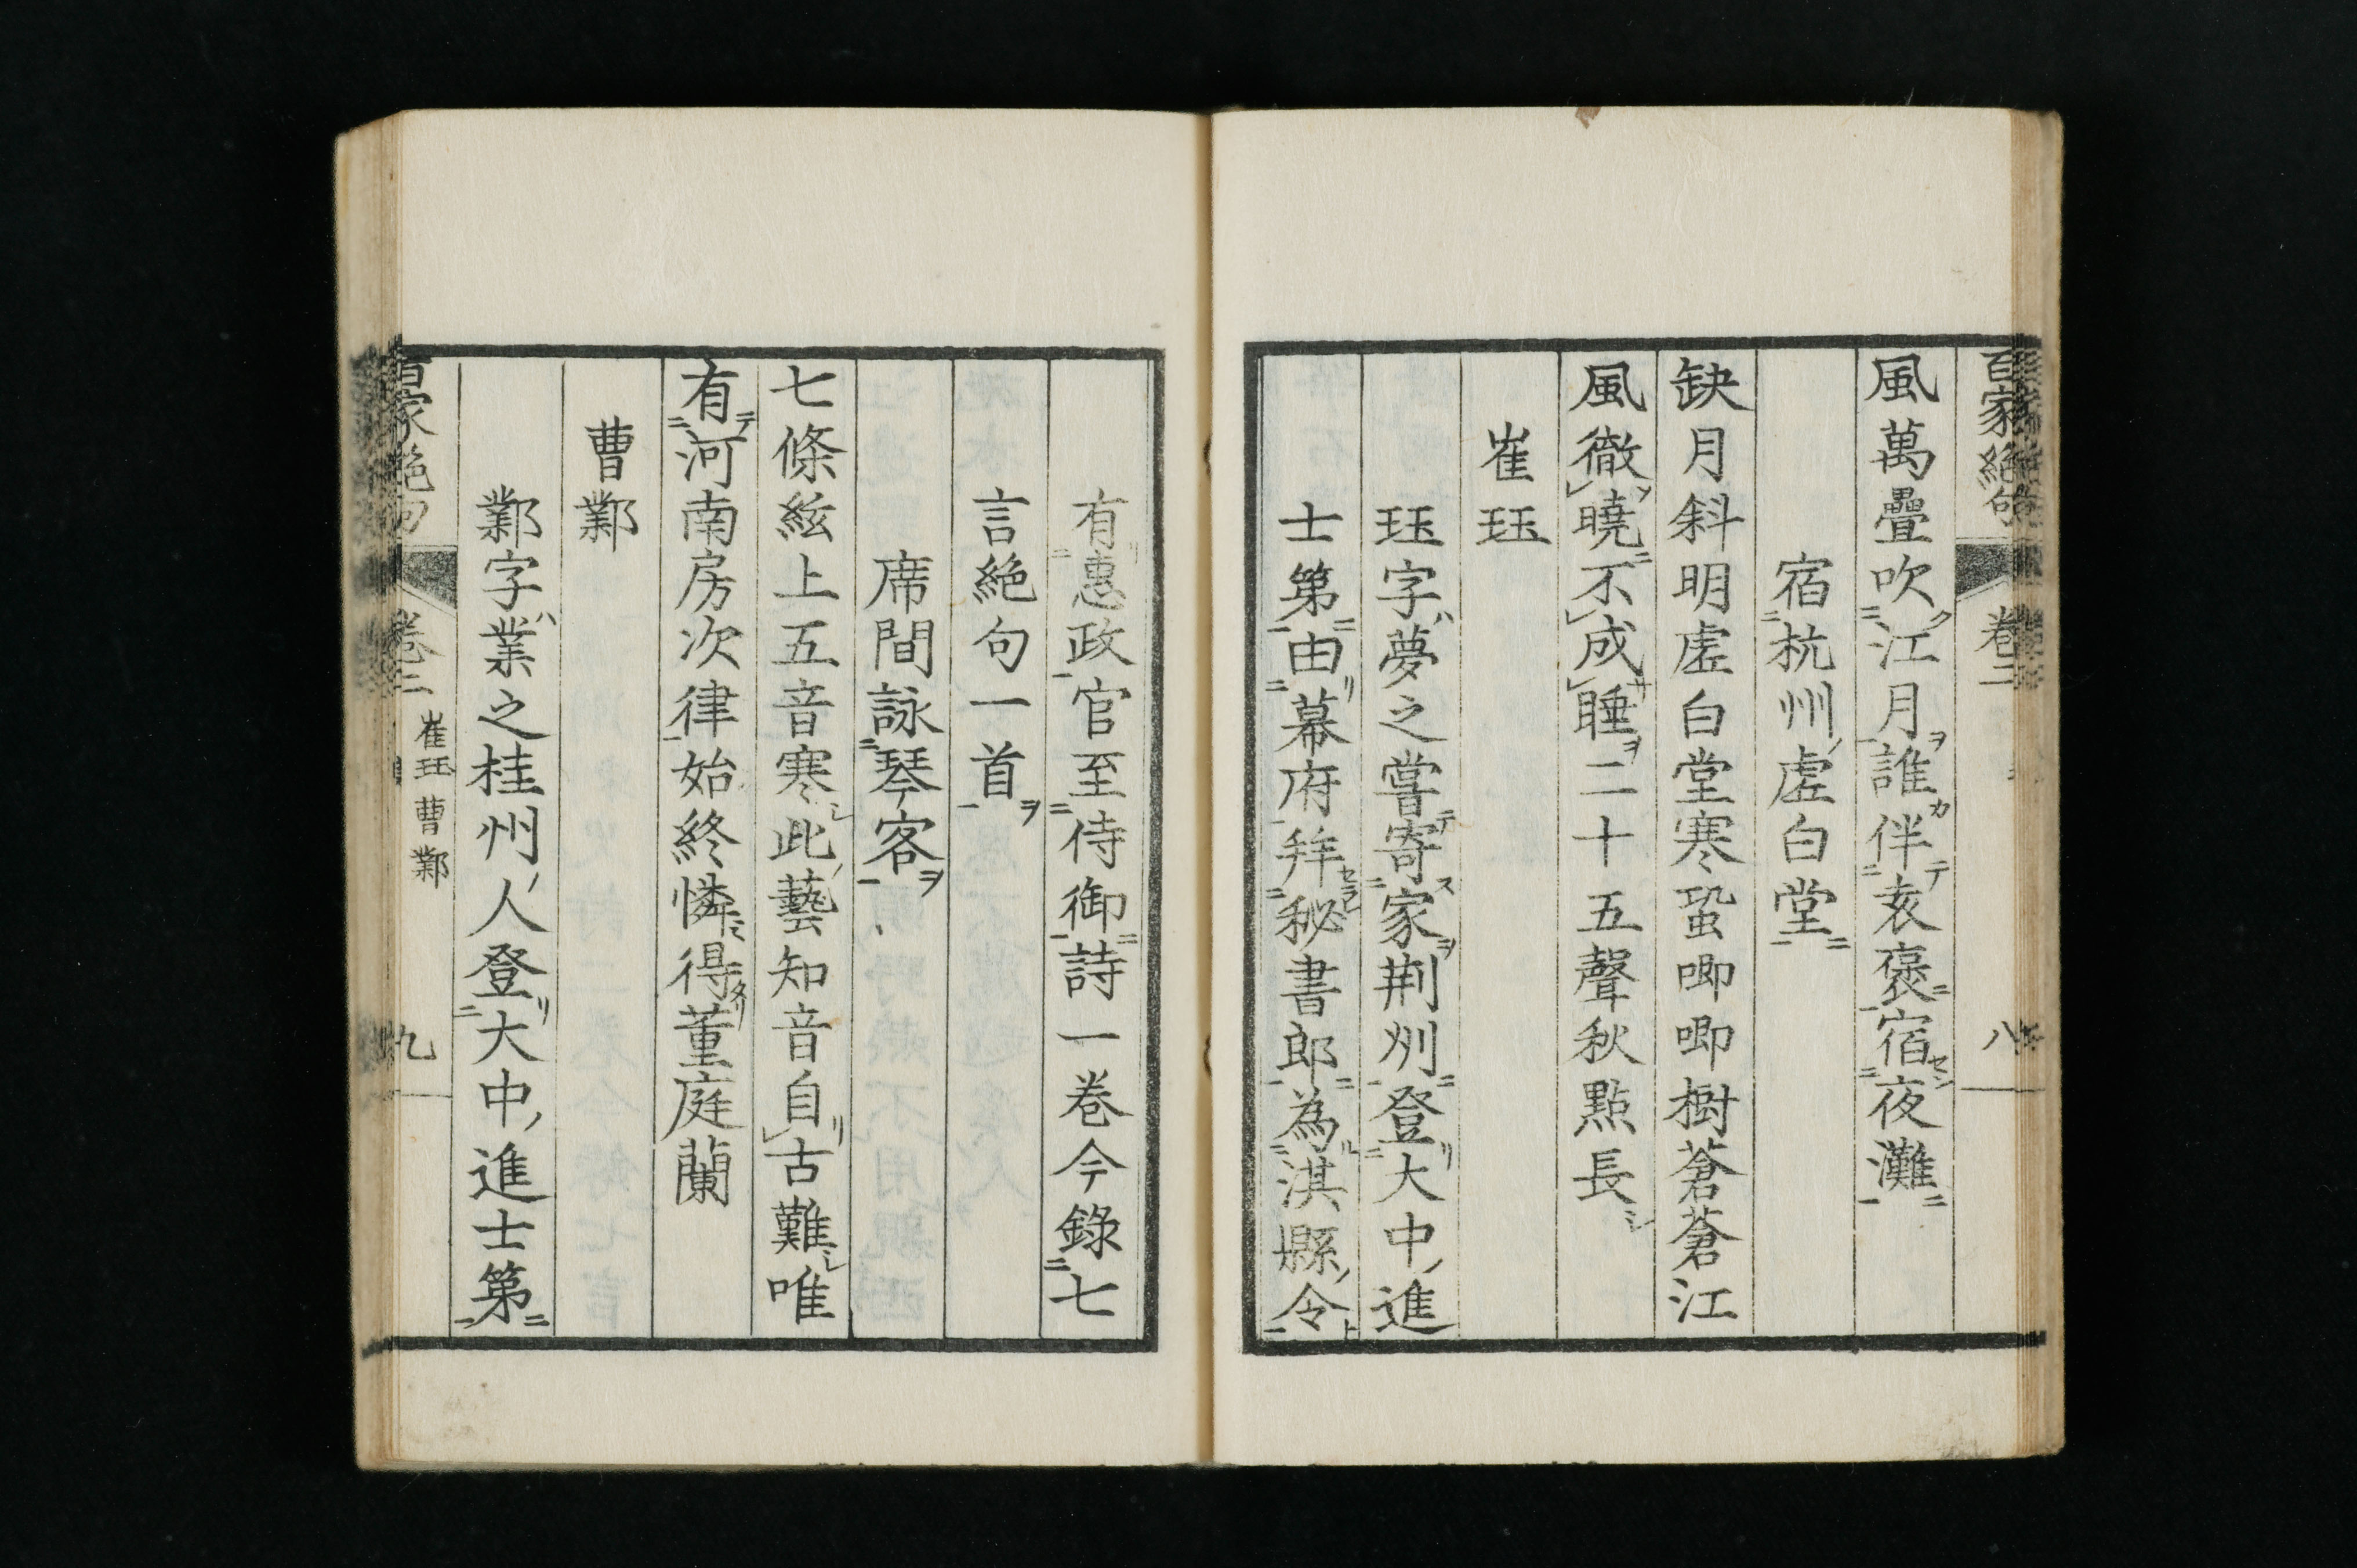 百家絶句 卷二 八
風萬疊吹江月誰伴衾褎宿夜灘
宿杭州虛白堂
缺月斜明虛白堂寒蛩唧唧樹蒼蒼江
風徹曉不成睡二十五聲秋點長
崔珏
珏字夢之嘗寄家荆州登大中進
士第由幕府拜秘書郎為淇縣令
有惠政官至侍御詩一卷今錄七
言絶句一首
席間詠琴客
七條絃上五音寒此藝知音自古難唯
有河南房次律始終憐得董庭蘭
曹鄴
鄴字業之桂州人登大中進士第
百家絶句 卷二 崔珏 曹鄴 九